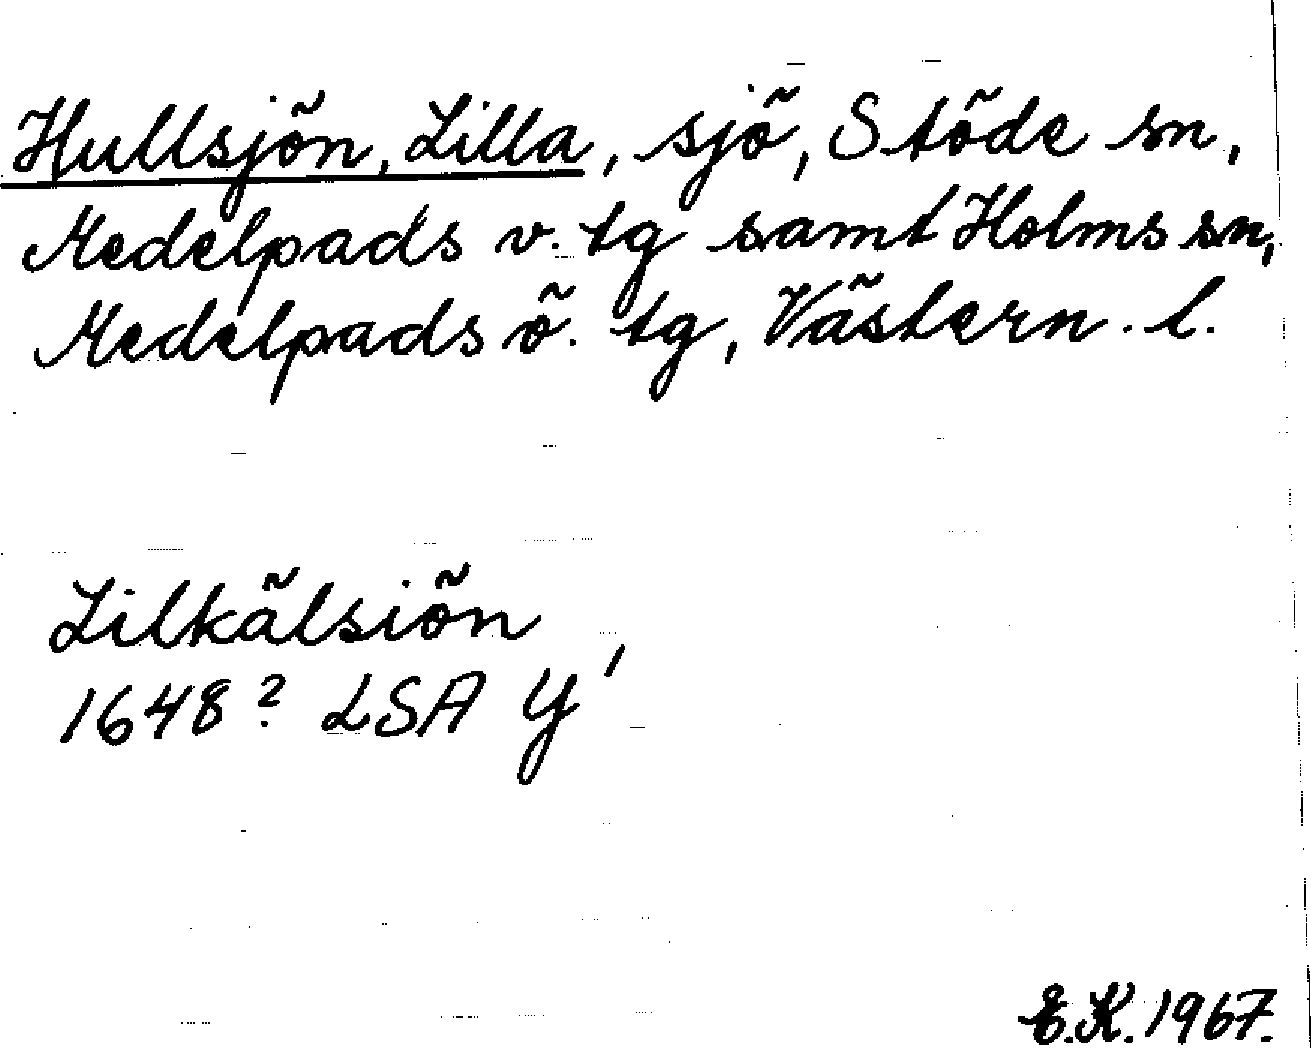 Hullsjön, Lilla, sjö, Stöde sn,
Medelpads v. tg samt Holms sn,
Medelpads ö. tg, Västern. l.
Lilkälsiön
1648? LSA Y'
E.K. 1967.